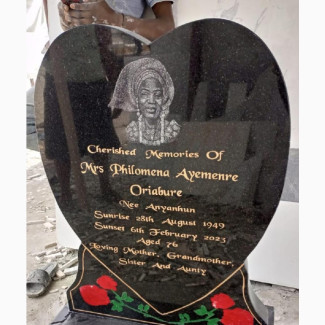 Cherished Memories Of
Mrs Philomena Ayemenre
Oriabure
Nee Anyanhun
Sunrise 28th August 1949
Sunset 6th February 2023
Aged 76
Loving Mother, Grandmother,
Sister And Aunty